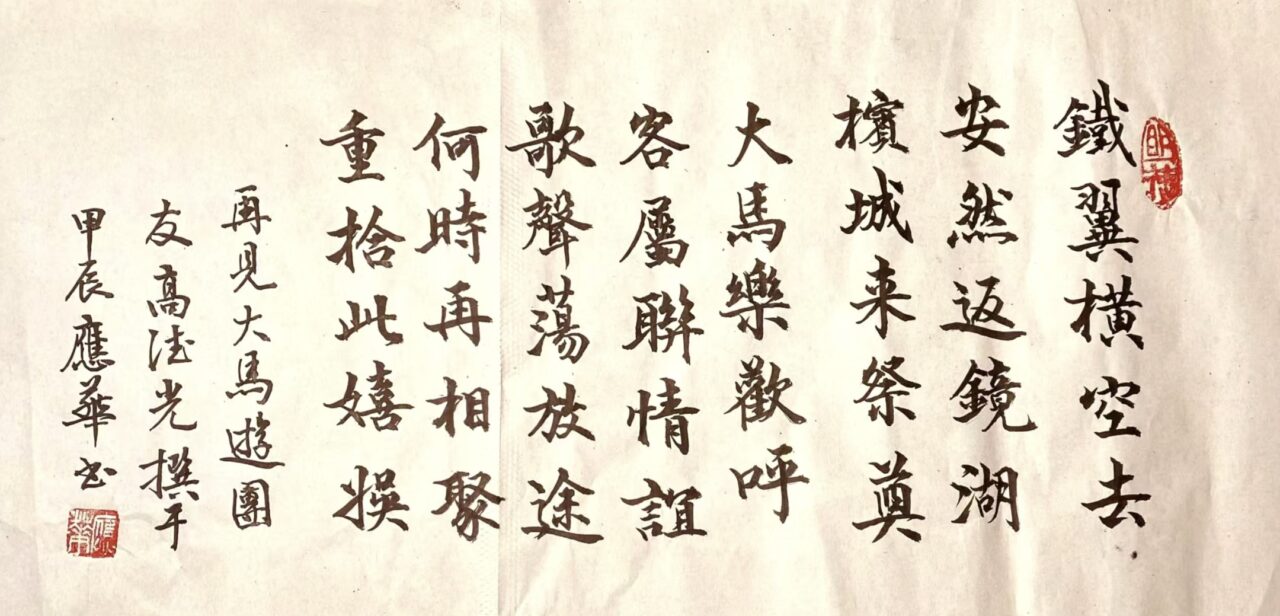 鐵翼橫空去
安然返鏡湖
檳城来祭奠
大馬樂歡呼
客屬聯情誼
歌聲蕩放途
何時再相聚
重拾此嬉娛
再見大馬遊團
友高光撰于
甲辰應華书
應華